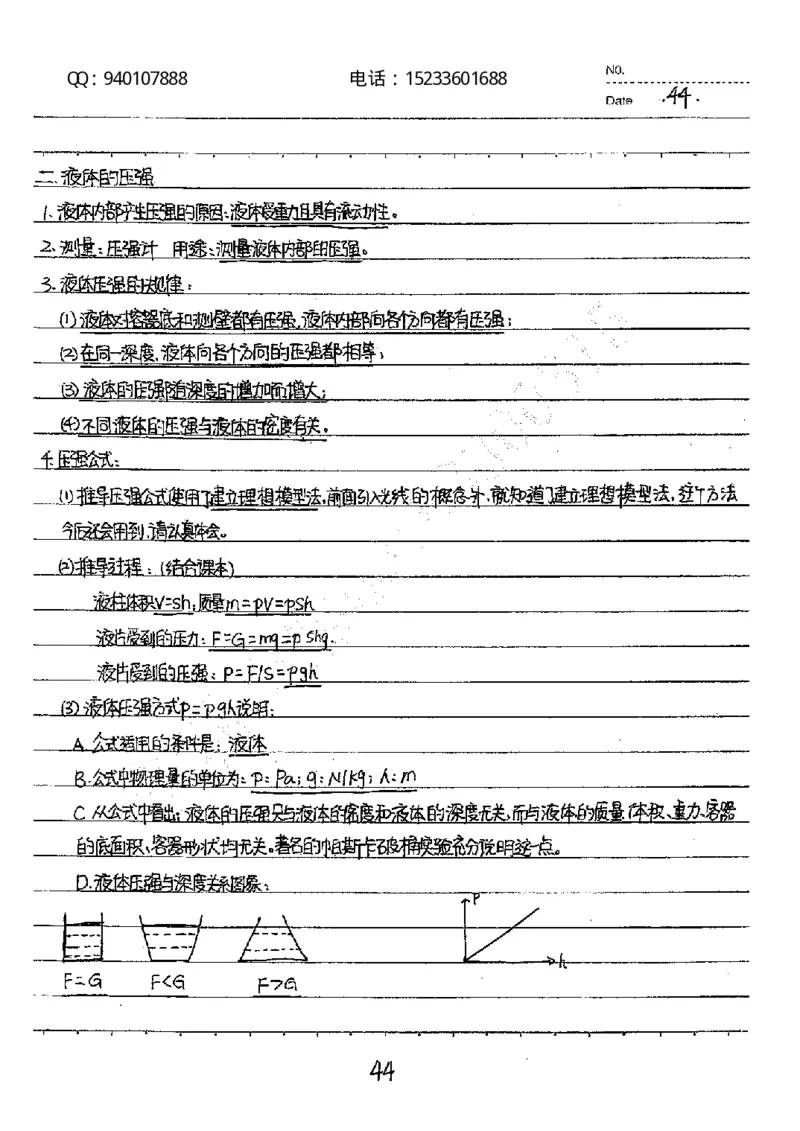 QQ：940107888 电话：15233601688 NO.
Date .44.
二.液体的压强
1.液体内部产生压强的原因:液体受重力且具有流动性。
2.测量:压强计 用途:测量液体内部的压强。
3.液体压强的规律:
(1)液体对容器底和侧壁都有压强,液体内部向各个方向都有压强;
(2)在同一深度,液体向各个方向的压强都相等;
(3)液体的压强随深度的增加而增大;
(4)不同液体的压强与液体的密度有关。
4.压强公式:
(1)推导压强公式使用了建立理想模型法,前面引入光线的概念外,就知道了建立理想模型法,这个方法
今后还会用到,请认真体会。
(2)推导过程:(结合课本)
液柱体积V=Sh;质量m=ρV=ρSh
液片受到的压力:F=G=mg=ρShg.
液片受到的压强:P=F/S=ρgh
(3)液体压强方式p=ρgh说明:
A.公式适用的条件是:液体
B.公式中物理量的单位为:p:Pa;g:N/kg;h:m
C.从公式中看出:液体的压强只与液体的密度和液体的深度无关,而与液体的质量、体积、重力、容器
的底面积、容器形状均无关。著名的帕斯卡破桶实验充分说明这一点。
D.液体压强与深度关系图象:
P
h
F=G F<G F>G
44